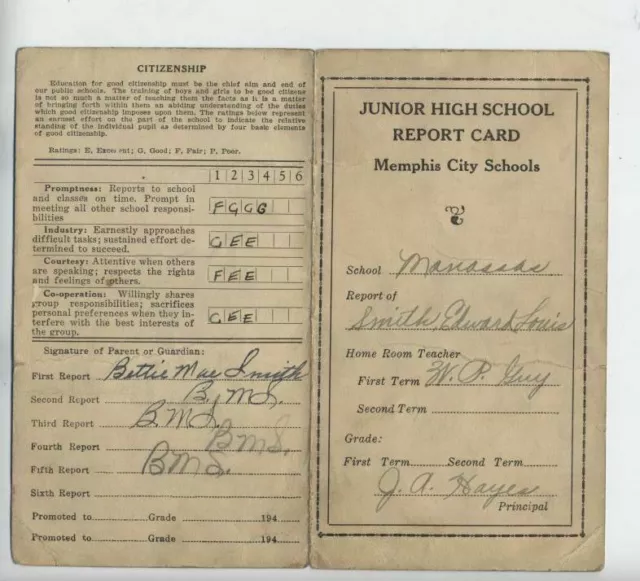 CITIZENSHIP
Education for good citizenship must be the chief aim and end of
our public schools. The training of boys and girls to be good citizens
is not so much a matter of teaching them the facts as it is a matter
of bringing forth within them an abiding understanding of the duties
which good citizenship imposes upon them. The ratings below represent
an earnest effort on the part of the school to indicate the relative
standing of the individual pupil as determined by four basic elements
of good citizenship.
Ratings: E, Excellent; G, Good; F, Fair; P, Poor.
1 2 3 4 5 6
Promptness: Reports to school
and classes on time. Prompt in
meeting all other school responsi-
bilities
F G G G
Industry: Earnestly approaches
difficult tasks; sustained effort de-
termined to succeed.
G E E
Courtesy: Attentive when others
are speaking; respects the rights
and feelings of others.
F E E
Co-operation: Willingly shares
group responsibilities; sacrifices
personal preferences when they in-
terfere with the best interests of
the group.
G E E
Signature of Parent or Guardian:
First Report Bettie Mae Smith
Second Report B.M.S.
Third Report B.M.S.
Fourth Report B M S.
Fifth Report B M S.
Sixth Report
Promoted to Grade 194
Promoted to Grade 194
JUNIOR HIGH SCHOOL
REPORT CARD
Memphis City Schools
School Manassas
Report of
Smith Edward Louis
Home Room Teacher
First Term W. P. Guy
Second Term
Grade:
First Term Second Term
J. A. Hayes
Principal